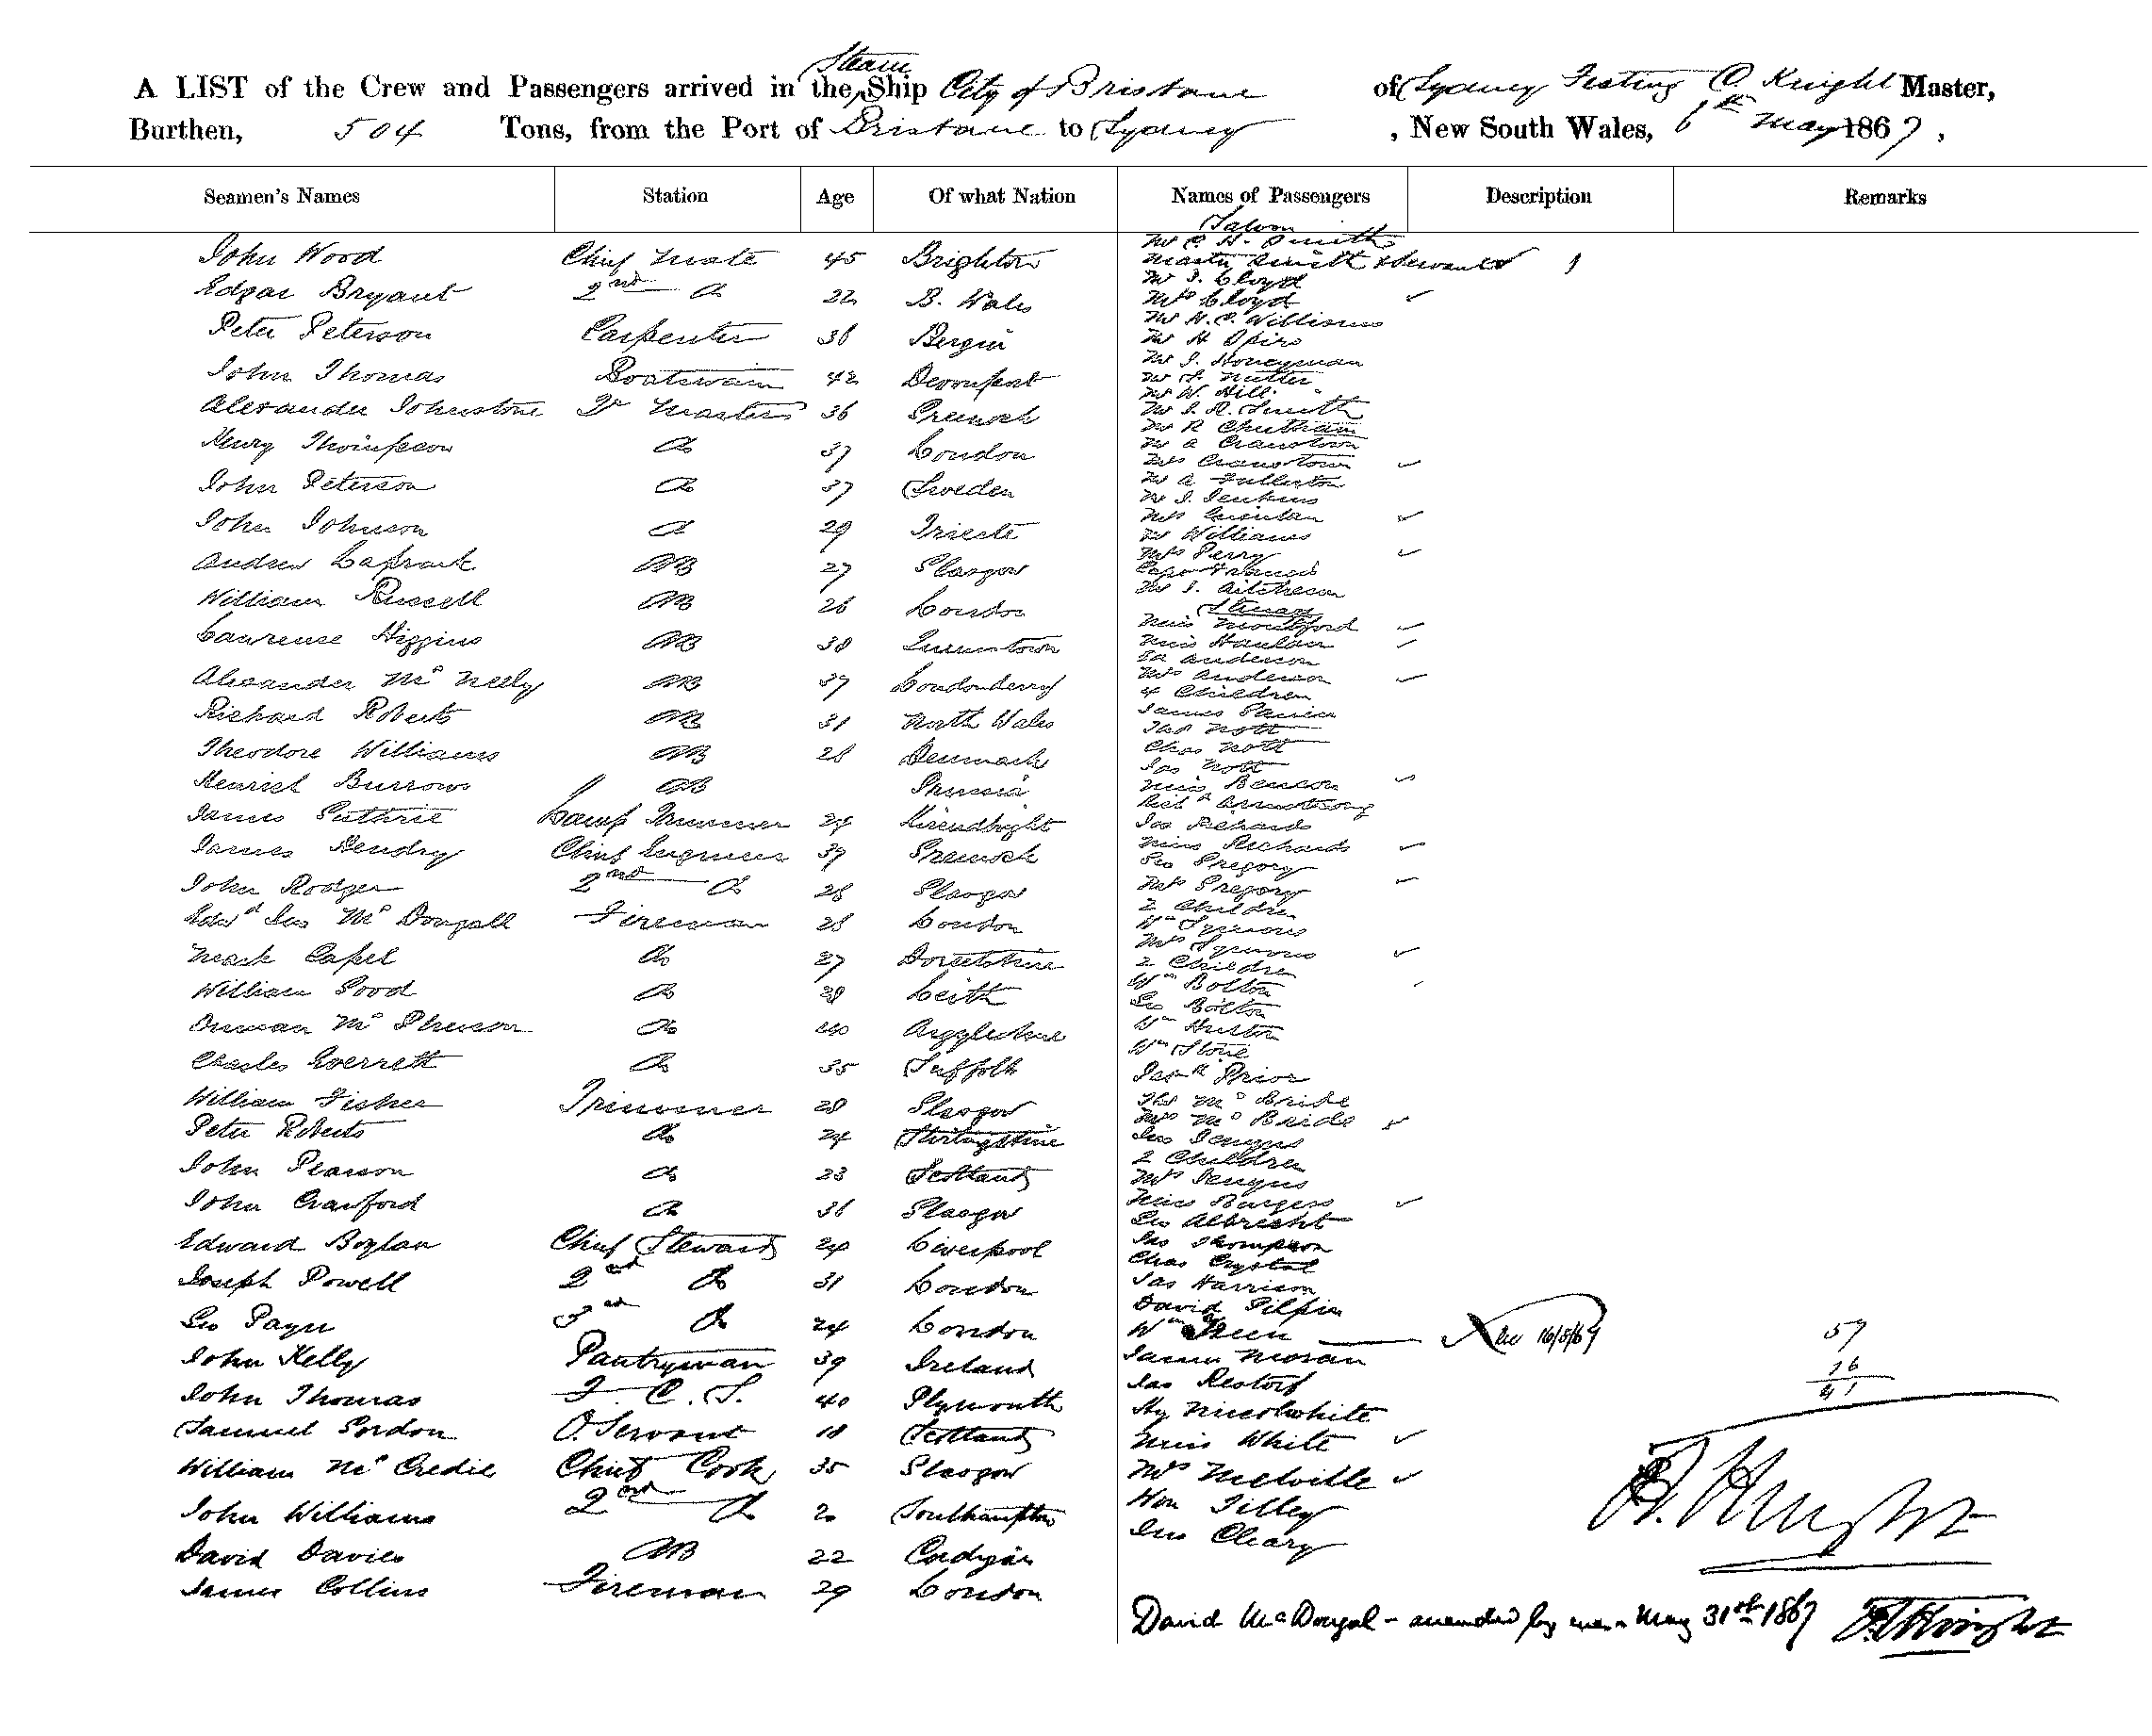 Steam
A LIST of the Crew and Passengers arrived in the Ship City of Brisbane of Sydney Festing C Knight Master,
Burthen, 504 Tons, from the Port of Brisbane to Sydney , New South Wales, 6th May 1867,
Seamen's Names Station Age Of what Nation Names of Passengers Description Remarks
John Wood Chief Mate 45 Brighton
Edgar Bryant 2nd Do 22 B. Wales
Peter Peterson Carpenter 36 Bergin
John Thomas Boatswain 42 Devonport
Alexander Johnstone Qr Masters 36 Greenock
Henry Thompson Do 37 London
John Peterson Do 37 Sweden
John Johnson Do 29 Trieste
Andrew AB 27 Glasgow
William Russell AB 26 London
Lawrence Higgins AB 38 Queenstown
Alexander Mc Neely AB 37 Londonderry
Richard Roberts AB 31 North Wales
Theodore Williams AB 28 Denmark
Henrich Burrows AB Prussia
James Guthrie Lamp Trimmer 24
James Hendry Chief Engineer 39 Greenock
John Rodger 2nd Do 28 Glasgow
Edwd Jno Mc Dougall Fireman 28 London
Mark Capel Do 27 Dorsetshire
William Good Do 28 Leith
Duncan Mc Pherson Do 40 Argyleshire
Charles Everrett Do 35 Suffolk
William Fisher Trimmer 28 Glasgow
Peter Roberts Do 24 Stirlingshire
John Pearson Do 23 Scotland
John Crawford Do 36 Glasgow
Edward Boylan Chief Steward 24 Liverpool
Joseph Powell 2nd Do 31 London
Geo Payn 3rd Do 24 London
John Kelly Pantryman 39 Ireland
John Thomas F. C. S. 40 Plymouth
Samuel Gordon O. Servant 18 Scotland
William Mc Credie Chief Cook 35 Glasgow
John Williams 2nd Do 20 Southampton
David Davies AB 22 Cardigan
James Collins Fireman 29 London
Saloon
Mr C. H. Smith
Master Smith & Servant 1
Mr J. Lloyd
Mrs Lloyd
Mr H. C. Williams
Mr H Spiro
Mr J. Honeyman
Mr F. Nutter
Mr W. Hill
Mr J. R. Smith
Mr R Cheetham
Mr A Cranstown
Mrs Cranstown
Mr A Fullerton
Mr J. Jenkins
Mrs
Mr Williams
Mrs Perry
Capt Francis
Mr J. Aitcheson
Steerage
Miss Mountford
Miss Hanlan
Ed Anderson
Mrs Anderson
4 Children
James
Thos Nott
Chas Nott
Jas Nott
Miss Benson
Richd Armstrong
Jas Richards
Miss Richards
Geo Gregory
Mrs Gregory
2 Children
Wm Symons
Mrs Symons
2 Children
Wm Bolton
Geo Bolton
Wm Huston
Wm Stone
Prior
Thos Mc Bride
Mrs Mc Bride
Jno Jenyns
2 Children
Mrs Jenyns
Miss Burgess
Geo Albrecht
Jas Thompson
Chas Crystal
Jas Harrison
David Gilpin
Wm Green 16/5/67
James Moran
Jas Restorf
Hy
Miss White
Mrs Melville
Wm Tilley
Jno Cleary
57
16
41
C. Knight
David McDougal - amended by me - May 31st 1867 F. C. Knight